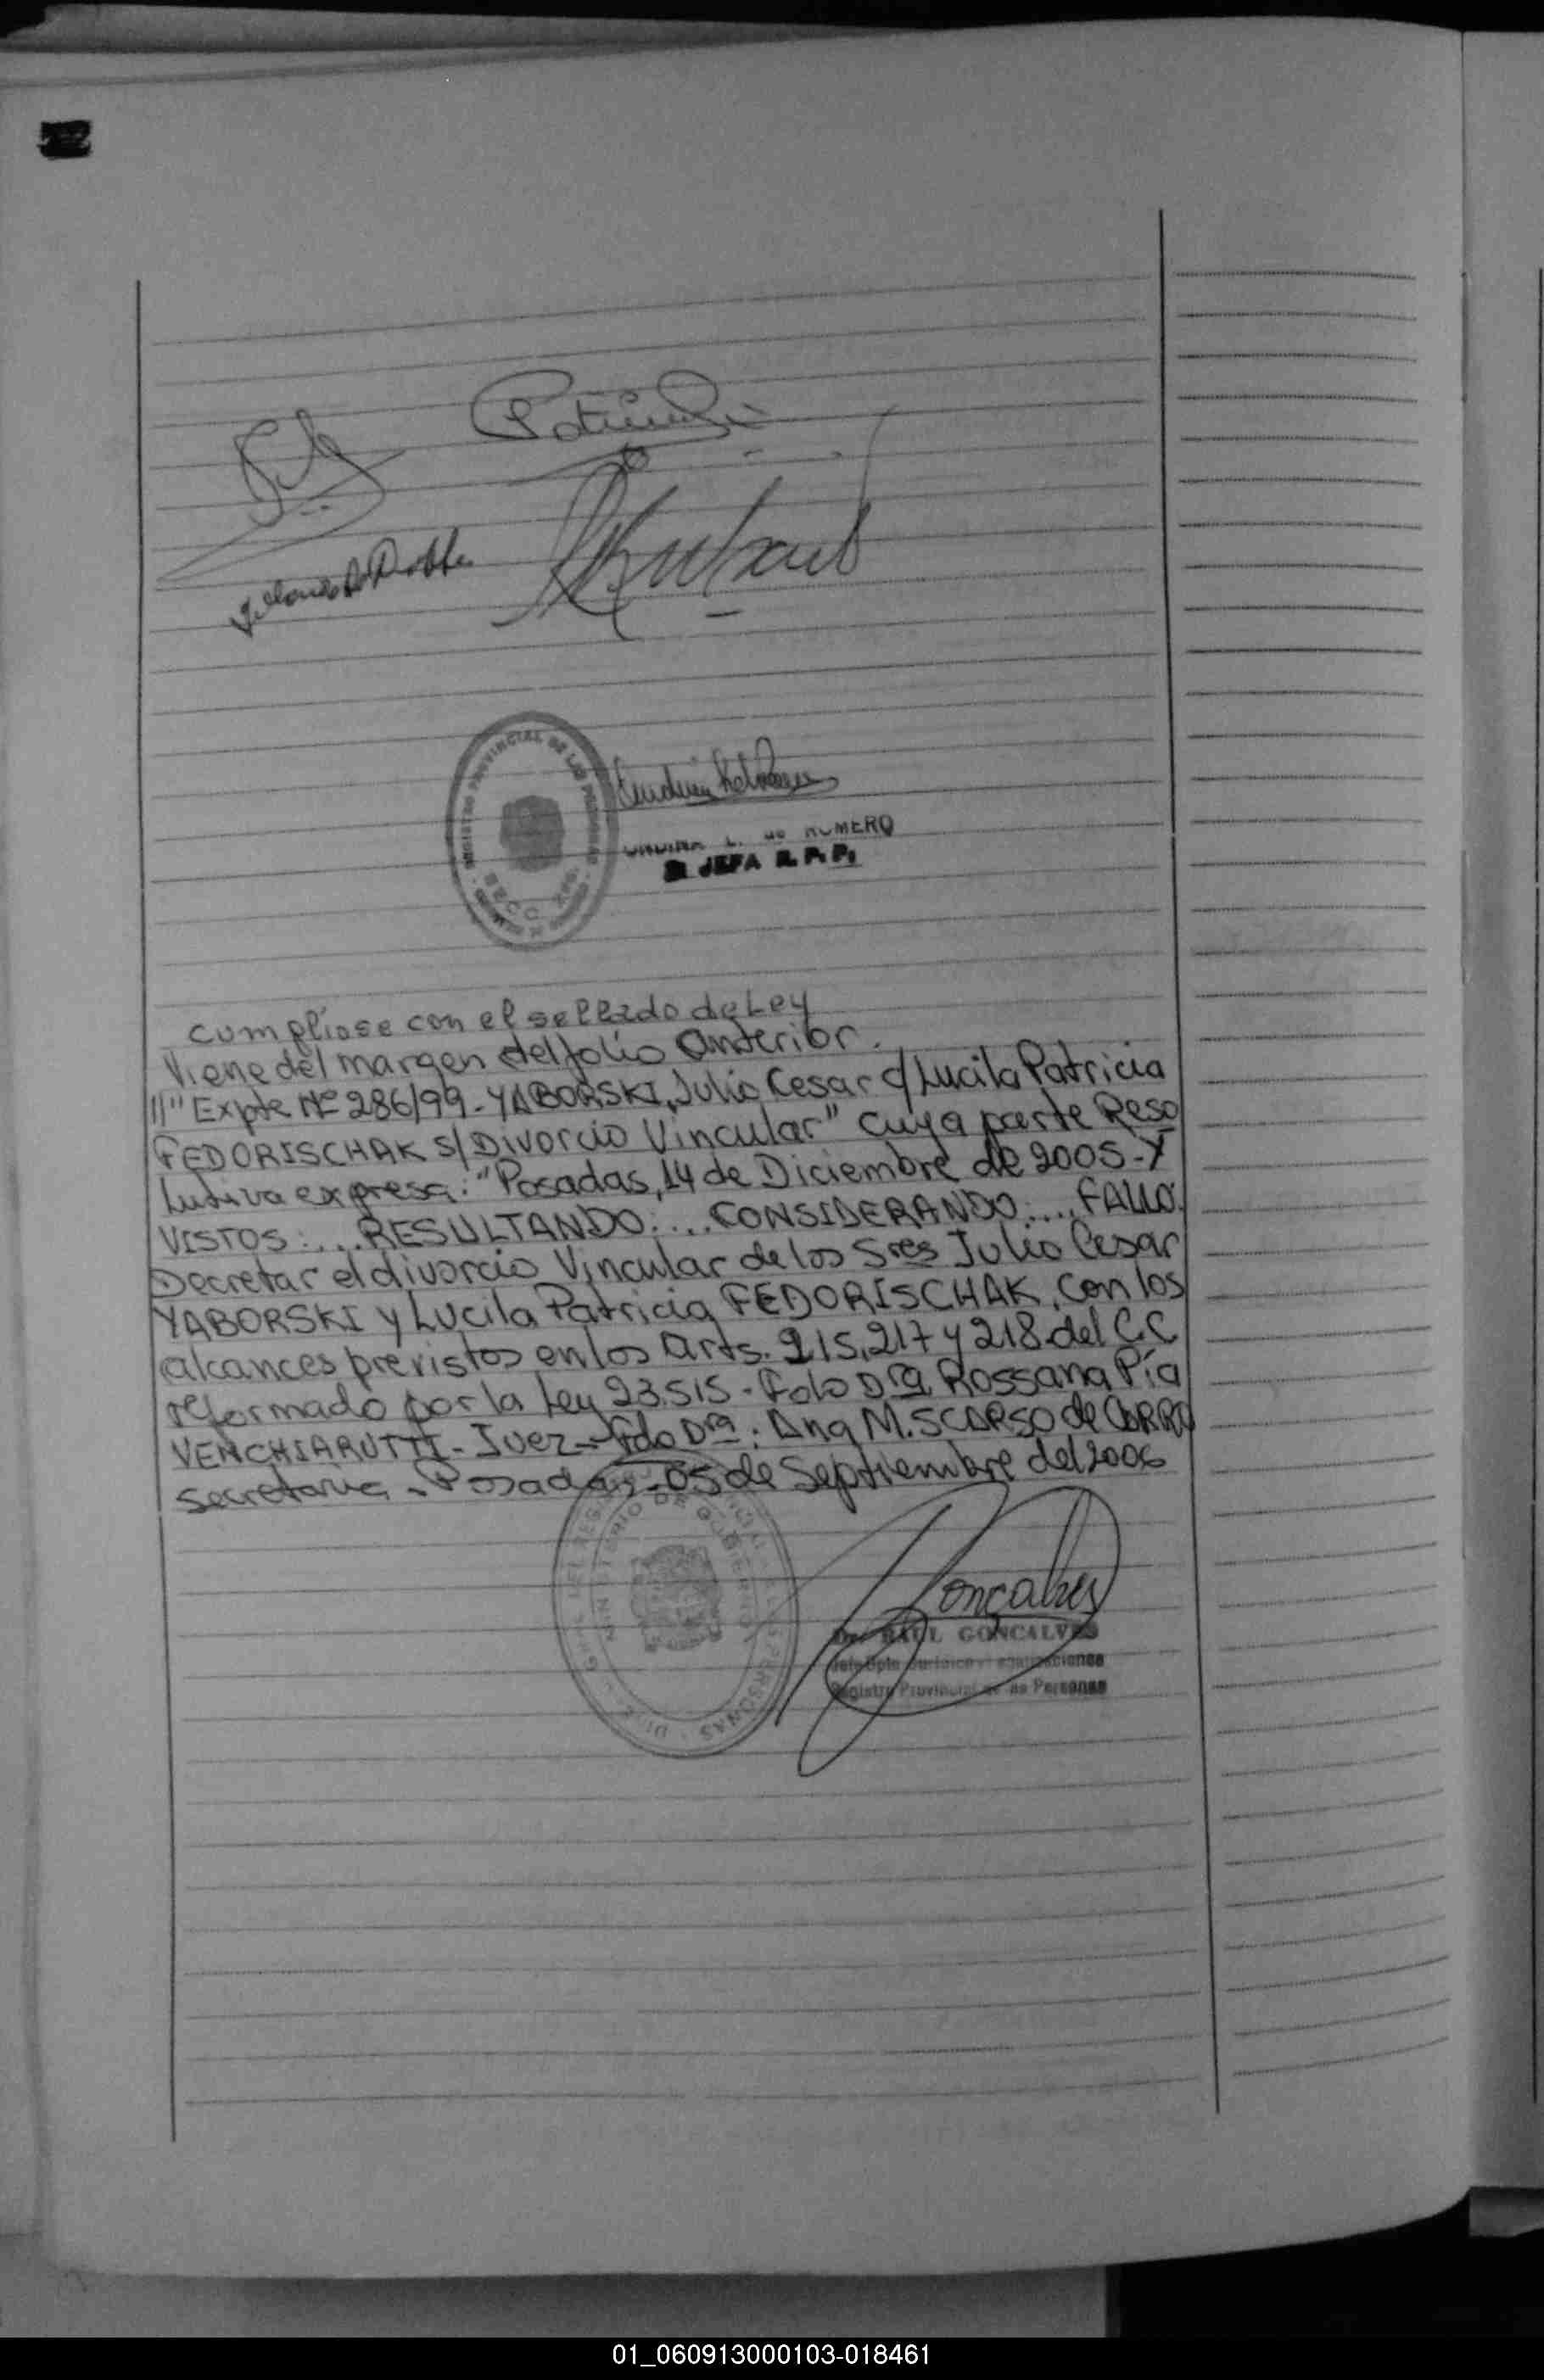 Patricia
REGISTRO PROVINCIAL DE LAS PERSONAS
SECC.
L. de ROMERO
JEFA R. P. P.
Cumpliose con el sellado de Ley
Viene del margen del folio Anterior.
//"Expte Nº 286/99- YABORSKI, Julio Cesar c/ Lucila Patricia
FEDORISCHAK s/ Divorcio Vincular" cuya parte Reso
lutiva expresa: "Posadas, 14 de Diciembre de 2005-Y
VISTOS:... RESULTANDO:... CONSIDERANDO:... FALLO:
Decretar el divorcio Vincular de los Sres Julio Cesar
YABORSKI y Lucila Patricia FEDORISCHAK, con los
alcances previstos en los Arts. 215, 217 y 218 del C.C
reformado por la Ley 23.515- Fdo Dra Rossana Pía
VENCHIARUTTI- Juez- Fdo Dra: Ana M. SCARSO de CORRO
Secretaria - Posadas, 05 de Septiembre del 2006
MINISTERIO DE GOBIERNO
PERSONAS
Goncalves
Dr. RAUL GONCALVES
Registro Provincial de las Personas
01_060913000103-018461